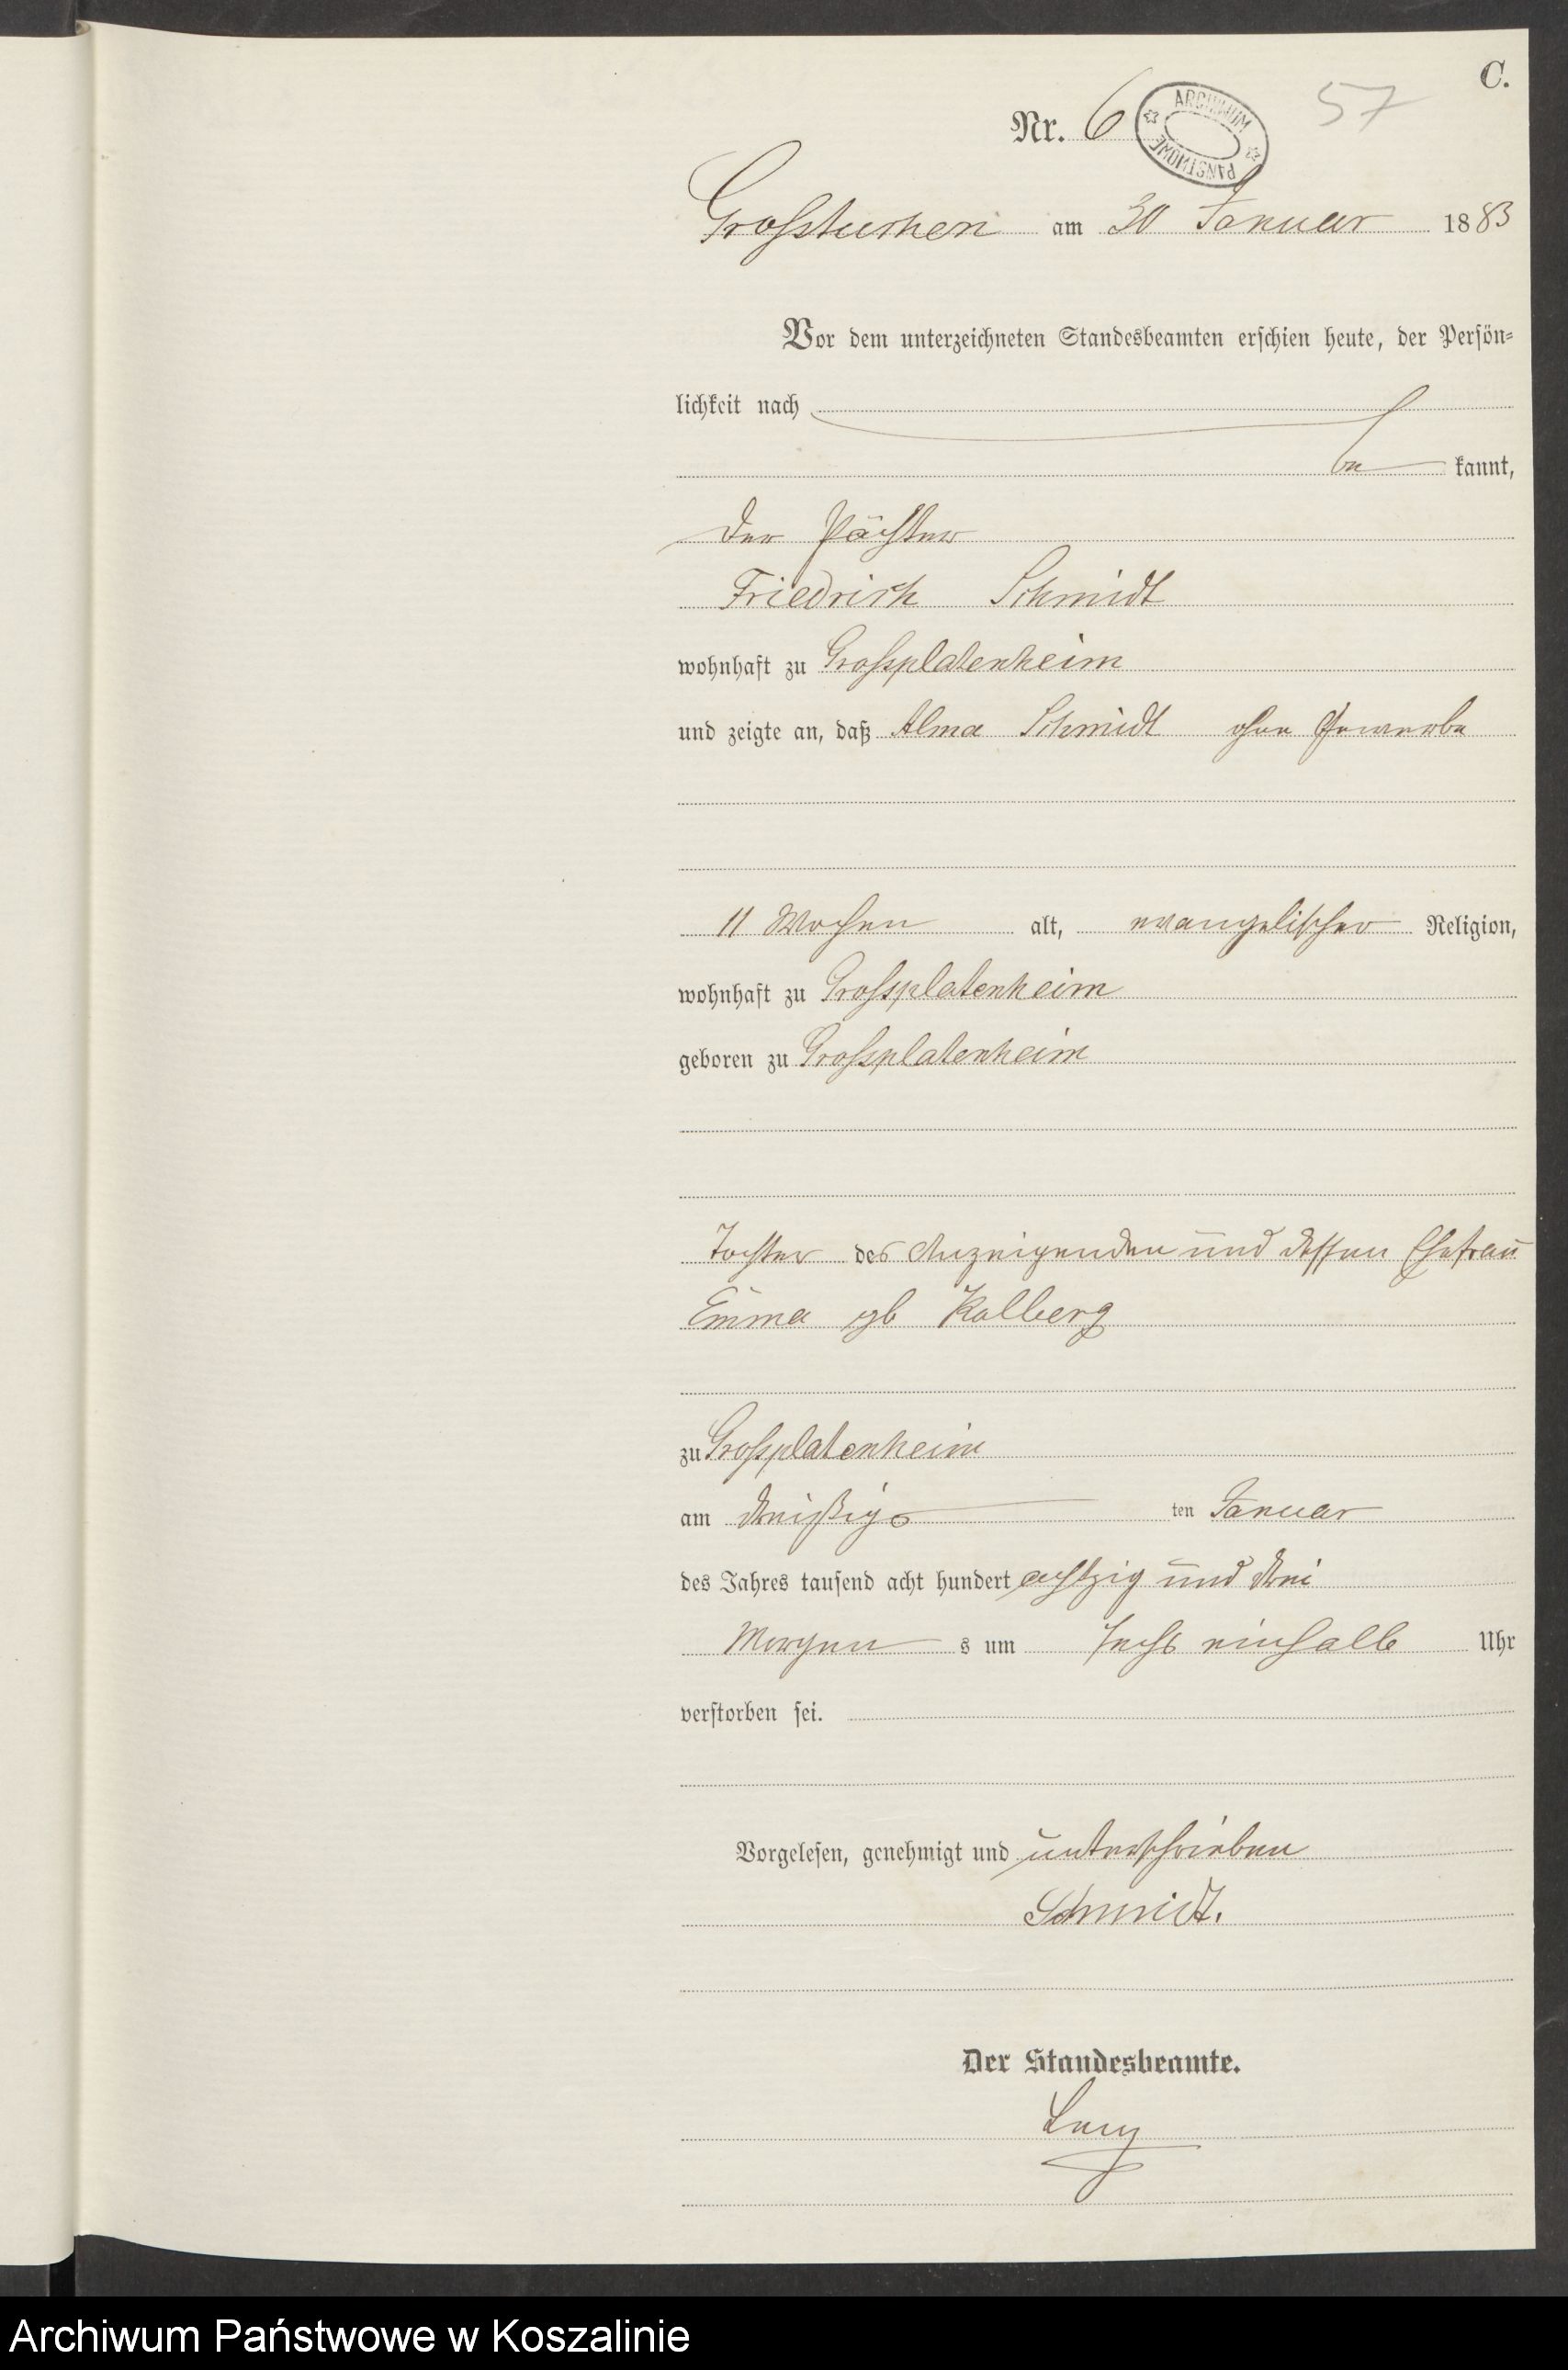 C.
Nr. 6
ARCHIWUM PAŃSTWOWE
57
Grosstuchen am 30 Januar 1883
Vor dem unterzeichneten Standesbeamten erschien heute, der Persön=
lichkeit nach
be kannt,
der Pächter
Friedrich Schmidt
wohnhaft zu Grossplatenheim
und zeigte an, daß Alma Schmidt ohne Gewerbe
11 Wochen alt, evangelischer Religion,
wohnhaft zu Grossplatenheim
geboren zu Grossplatenheim
Tochter des Anzeigenden und dessen Ehefrau
Emma gb Kolberg
zu Grossplatenheim
am dreißigs ten Januar
des Jahres tausend acht hundert achtzig und drei
Morgen s um sechs einhalb Uhr
verstorben sei.
Vorgelesen, genehmigt und unterschrieben
Schmidt.
Der Standesbeamte.
Archiwum Państwowe w Koszalinie